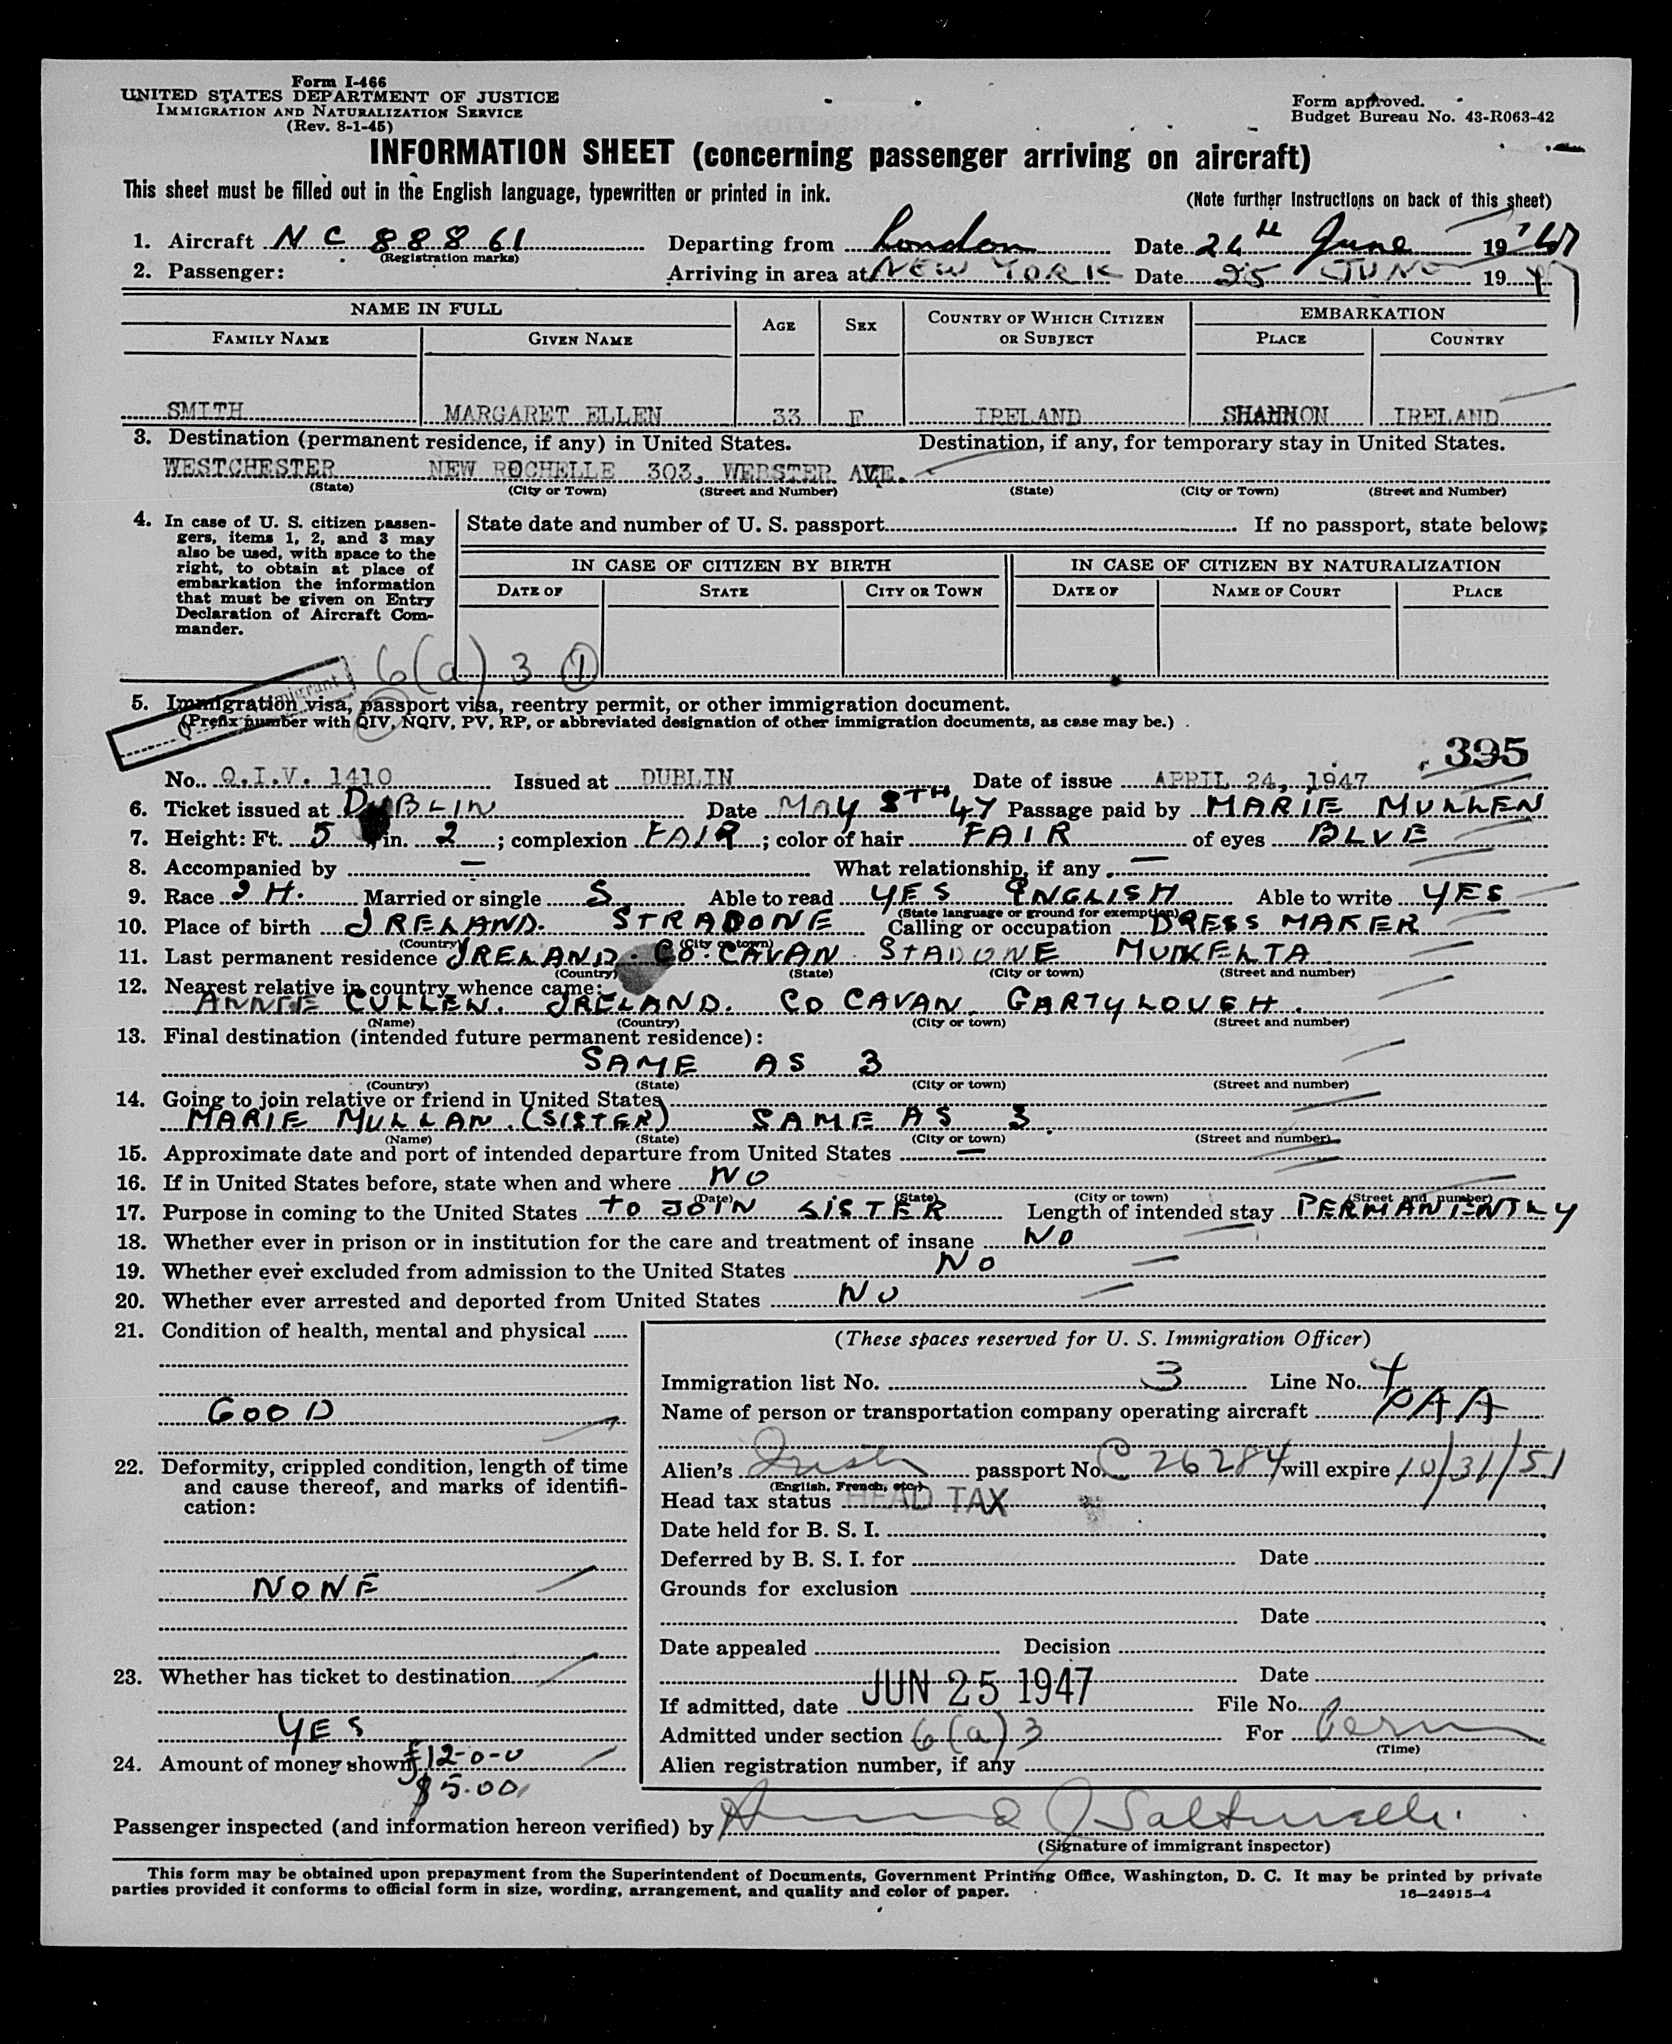 Form I-466
UNITED STATES DEPARTMENT OF JUSTICE
IMMIGRATION AND NATURALIZATION SERVICE
(Rev. 8-1-45)
Form approved.
Budget Bureau No. 43-R063-42
INFORMATION SHEET (concerning passenger arriving on aircraft)
This sheet must be filled out in the English language, typewritten or printed in ink.
(Note further Instructions on back of this sheet)
1. Aircraft N C 88861 Departing from London Date 24th June 1947
(Registration marks)
2. Passenger: Arriving in area at NEW YORK Date 25 JUNE 1947
NAME IN FULL AGE SEX COUNTRY OF WHICH CITIZEN OR SUBJECT EMBARKATION
FAMILY NAME GIVEN NAME PLACE COUNTRY
SMITH MARGARET ELLEN 33 F IRELAND SHANNON IRELAND
3. Destination (permanent residence, if any) in United States. Destination, if any, for temporary stay in United States.
WESTCHESTER NEW ROCHELLE 303, WEBSTER AVE.
(State) (City or Town) (Street and Number) (State) (City or Town) (Street and Number)
4. In case of U. S. citizen passen-
gers, items 1, 2, and 3 may
also be used, with space to the
right, to obtain at place of
embarkation the information
that must be given on Entry
Declaration of Aircraft Com-
mander.
State date and number of U. S. passport If no passport, state below:
IN CASE OF CITIZEN BY BIRTH IN CASE OF CITIZEN BY NATURALIZATION
DATE OF STATE CITY OR TOWN DATE OF NAME OF COURT PLACE
6(a) 3 1
5. Immigration visa, passport visa, reentry permit, or other immigration document.
(Prefix number with QIV, NQIV, PV, RP, or abbreviated designation of other immigration documents, as case may be.)
395
No. Q.I.V. 1410 Issued at DUBLIN Date of issue APRIL 24, 1947
6. Ticket issued at DUBLIN Date MAY 8TH 47 Passage paid by MARIE MULLEN
7. Height: Ft. 5, in. 2; complexion FAIR; color of hair FAIR of eyes BLUE
8. Accompanied by — What relationship, if any —
9. Race IH. Married or single S Able to read YES ENGLISH Able to write YES
(State language or ground for exemption)
10. Place of birth IRELAND. STRADONE Calling or occupation DRESS MAKER
(Country) (City or town)
11. Last permanent residence IRELAND. CO. CAVAN STADONE
(Country) (State) (City or town) (Street and number)
12. Nearest relative in country whence came:
ANNIE CULLEN. IRELAND. CO CAVAN GARTYLOUGH.
(Name) (Country) (City or town) (Street and number)
13. Final destination (intended future permanent residence):
SAME AS 3
(Country) (State) (City or town) (Street and number)
14. Going to join relative or friend in United States
MARIE MULLAN. (SISTER) SAME AS 3.
(Name) (State) (City or town) (Street and number)
15. Approximate date and port of intended departure from United States —
16. If in United States before, state when and where NO
(Date) (State) (City or town) (Street and number)
17. Purpose in coming to the United States TO JOIN SISTER Length of intended stay PERMANENTLY
18. Whether ever in prison or in institution for the care and treatment of insane NO
19. Whether ever excluded from admission to the United States NO
20. Whether ever arrested and deported from United States NO
21. Condition of health, mental and physical
GOOD
22. Deformity, crippled condition, length of time
and cause thereof, and marks of identifi-
cation:
NONE
23. Whether has ticket to destination
YES
24. Amount of money shown £12-0-0
$5.00
(These spaces reserved for U. S. Immigration Officer)
Immigration list No. 3 Line No. 4
Name of person or transportation company operating aircraft PAA
Alien's Irish passport No. C 26284 will expire 10/31/51
(English, French, etc.)
Head tax status HEAD TAX
Date held for B. S. I.
Deferred by B. S. I. for Date
Grounds for exclusion
Date
Date appealed Decision
Date
If admitted, date JUN 25 1947 File No.
Admitted under section 6(a)3 For Perm
(Time)
Alien registration number, if any
Passenger inspected (and information hereon verified) by
(Signature of immigrant inspector)
This form may be obtained upon prepayment from the Superintendent of Documents, Government Printing Office, Washington, D. C. It may be printed by private
parties provided it conforms to official form in size, wording, arrangement, and quality and color of paper.
16—24915-4